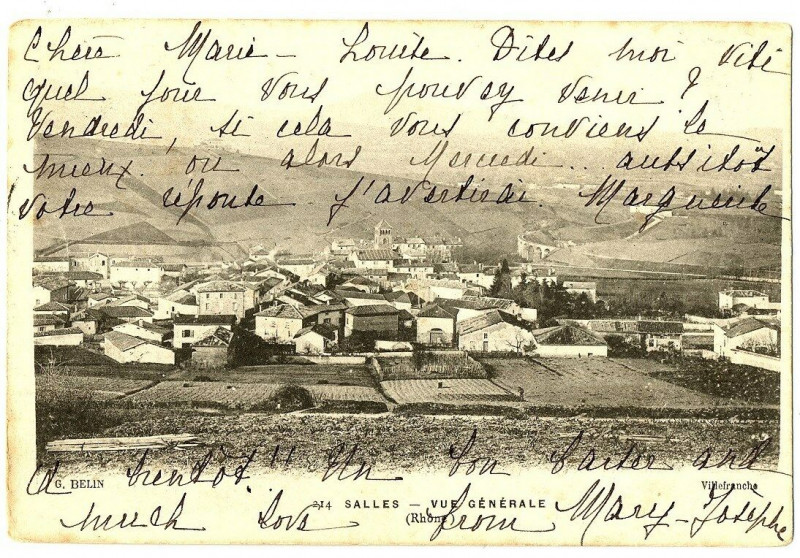 Chère Marie - Louise. Dites moi vite
quel jour vous pouvez venir ?
Vendredi, si cela vous conviens le
mieux. ou alors Mercredi... aussitôt
votre réponse j'avertirai. Marguerite
à bientôt!! Un bon baiser and
G. BELIN
Villefranche
214 SALLES — VUE GÉNÉRALE
(Rhône)
much love from Mary-Josèphe